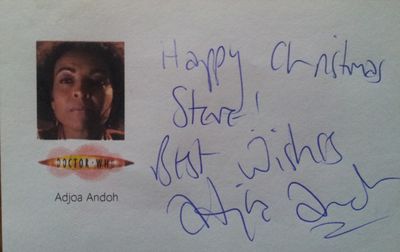 Happy Christmas
Steve!
Best Wishes
Adjoa Andoh
DOCTOR WHO
Adjoa Andoh